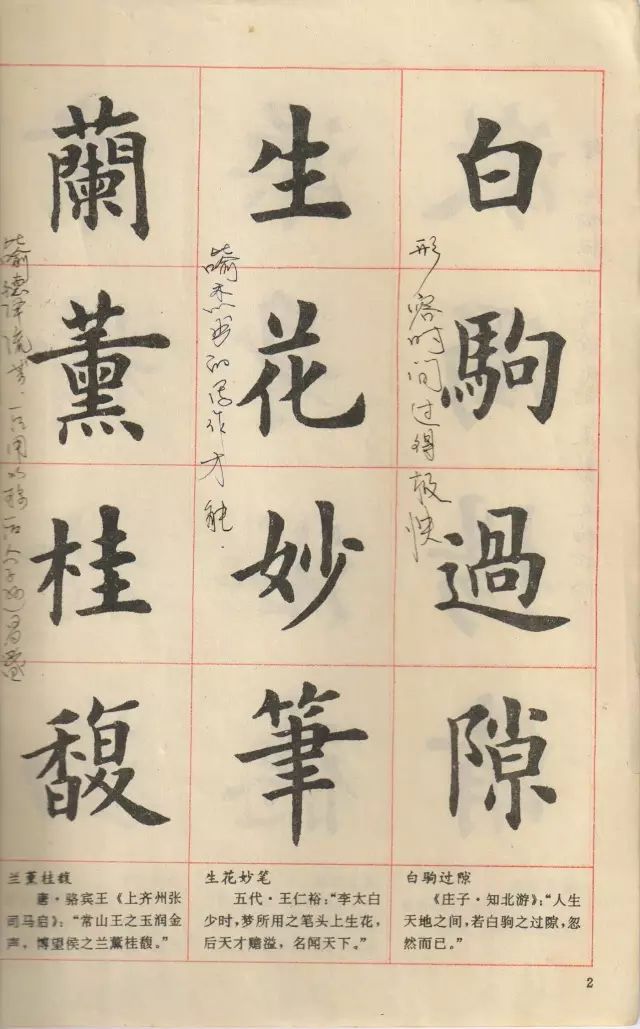 白駒過隙
形容时间过得极快
生花妙筆
喻杰出的写作才能.
蘭薰桂馥
白驹过隙
《庄子·知北游》：“人生
天地之间，若白驹之过隙，忽
然而已。”
生花妙笔
五代·王仁裕：“李太白
少时，梦所用之笔头上生花，
后天才赡溢，名闻天下。”
兰薰桂馥
唐·骆宾王《上齐州张
司马启》：“常山王之玉润金
声，博望侯之兰薰桂馥。”
2